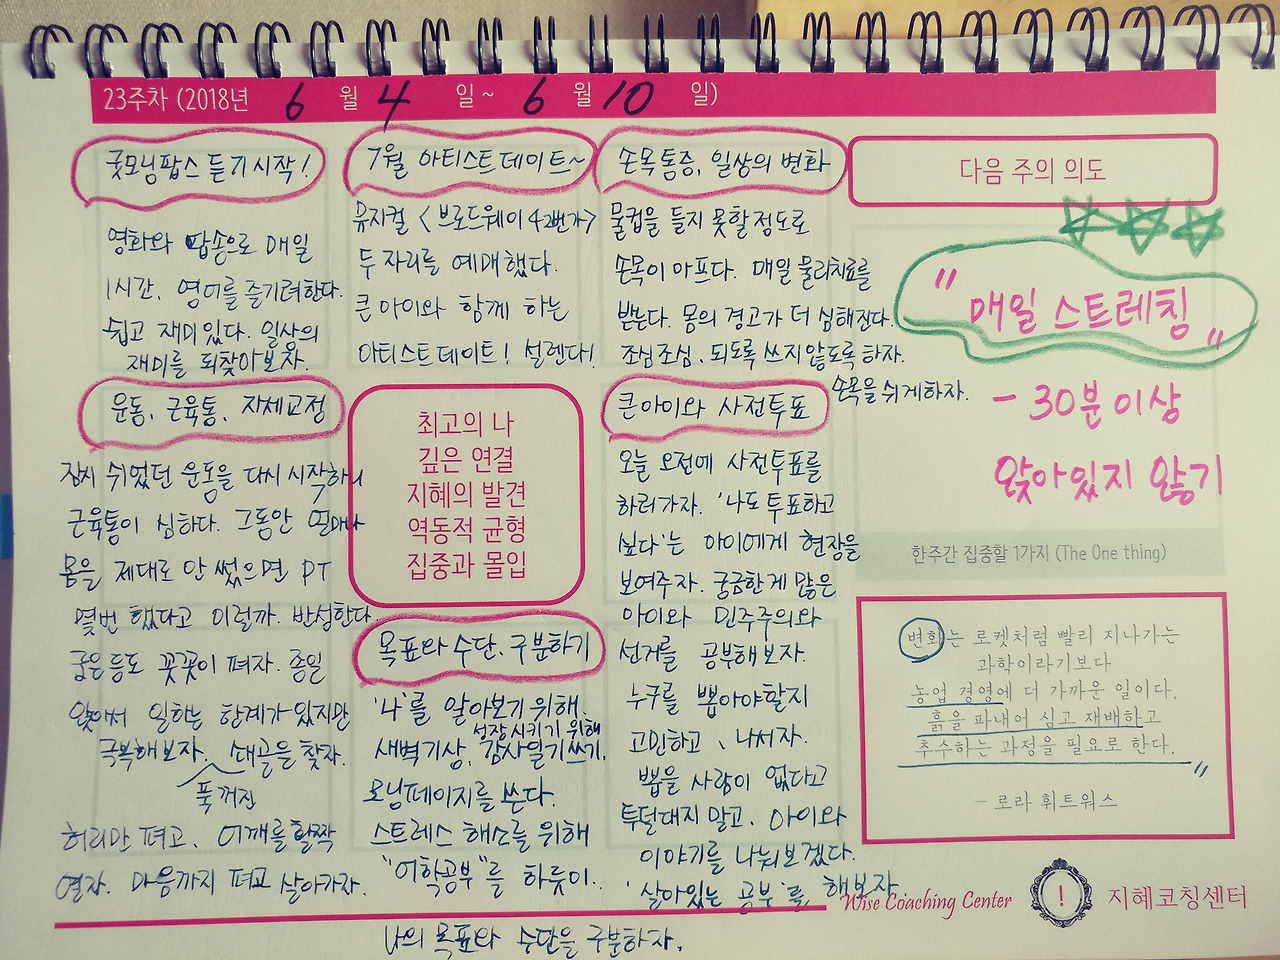 23주차 (2018년 6월 4일~ 6월 10일)
굿모닝팝스 듣기 시작!
영화와 팝송으로 매일
1시간, 영어를 즐기려한다.
쉽고 재미있다. 일상의
재미를 되찾아보자.
운동, 근육통, 자세교정
잠시 쉬었던 운동을 다시 시작하니
근육통이 심하다. 그동안 얼마나
몸을 제대로 안 썼으면 PT
몇번 했다고 이럴까. 반성한다.
굽은등도 꼿꼿이 펴자. 종일
앉아서 일하는 한계가 있지만
극복해보자. 쇄골을 찾자.
푹 꺼진
허리만 펴고, 어깨를 활짝
열자. 마음까지 펴고 살아가자.
7월 아티스트데이트~
뮤지컬 <브로드웨이 42번가>
두 자리를 예매했다.
큰아이와 함께 하는
아티스트데이트! 설렌다!
최고의 나
깊은 연결
지혜의 발견
역동적 균형
집중과 몰입
목표와 수단, 구분하기
'나'를 알아보기 위해,
성장시키기 위해
새벽기상, 감사일기쓰기,
모닝페이지를 쓴다.
스트레스 해소를 위해
"어학공부"를 하듯이.
나의 목표와 수단을 구분하자.
손목통증, 일상의 변화
물컵을 들지 못할정도로
손목이 아프다. 매일 물리치료를
받는다. 몸의 경고가 더 심해진다.
조심조심, 되도록 쓰지않도록 하자.
손목을 쉬게하자.
큰아이와 사전투표
오늘 오전에 사전투표를
하러가자. '나도 투표하고
싶다'는 아이에게 현장을
보여주자. 궁금한게 많은
아이와 민주주의와
선거를 공부해보자.
누구를 뽑아야할지
고민하고, 나서자.
뽑을 사람이 없다고
투덜대지 말고, 아이와
이야기를 나눠보겠다.
'살아있는 공부'를 해보자
다음 주의 의도
"매일 스트레칭"
- 30분 이상
앉아있지 않기
한주간 집중할 1가지 (The One thing)
변화는 로켓처럼 빨리 지나가는
과학이라기보다
농업 경영에 더 가까운 일이다.
흙을 파내어 심고 재배하고
추수하는 과정을 필요로 한다.
"
- 로라 휘트워스
Wise Coaching Center ! 지혜코칭센터